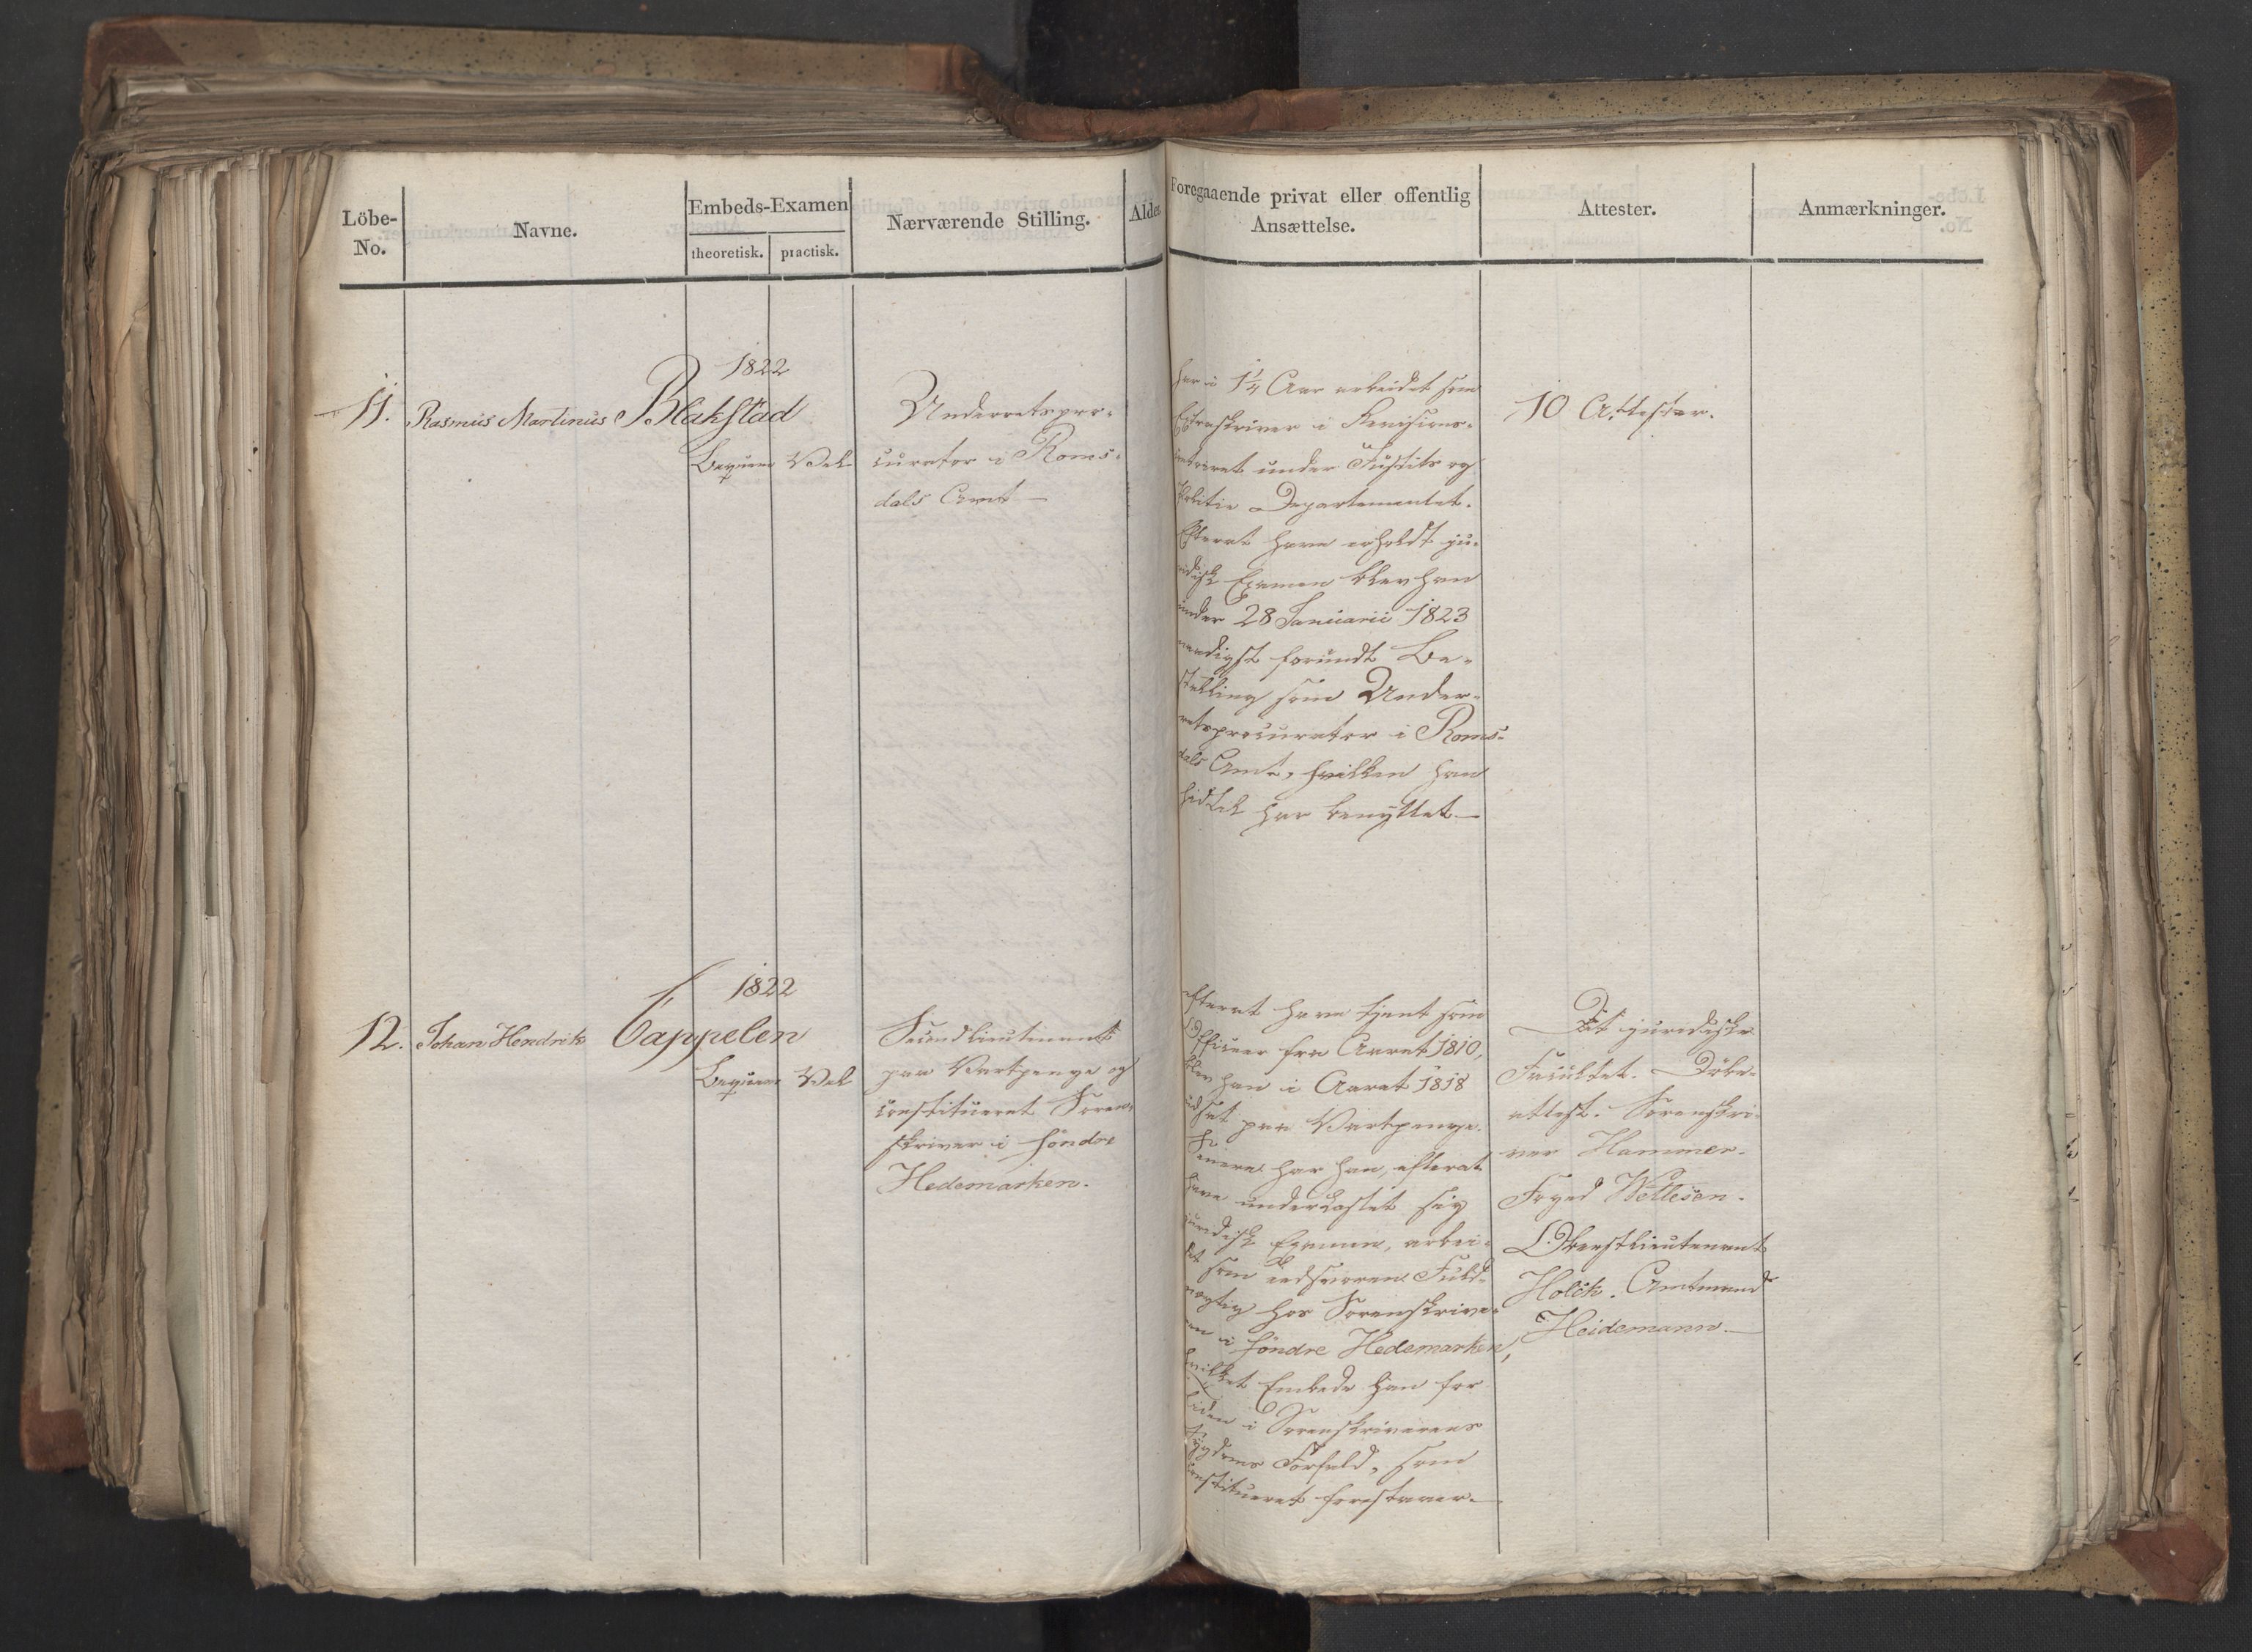 Löbe-
No.
Navne.
Embeds-Examen
theoretisk.
practisk.
Nærværende Stilling.
Alder.
Foregaaende privat eller offentlig
Ansættelse.
Attester.
Anmærkninger.
11.
Rasmus Martinus Blakstad
1822
Beqvem
Vel
Underretspro-
curator i Roms-
dals Amt —
har i 1 1/4 Aar arbeidet som
Extraskriver i Revisions-
under Justits og
Politie Departementet.
Efterat have erholdt ju-
ridisk Examen blev han
under 28 Januarii 1823
naadigst forundt Be-
stalling som Under-
retsprocurator i Roms-
dals Amt, hvilken han
hidtil har benyttet —
10 Attester.
12.
Johan Hendrik Cappelen
1822
Beqvem
Vel
Secondlieutenant
paa Vartpenge og
constitueret Soren-
skriver i søndre
Hedemarken.
Efterat have tjent som
Officeer fra Aaret 1810,
blev han i Aaret 1818
udsat paa Vartpenge.
Senere har han, efterat
have underkastet sig
juridisk Examen, arbei-
det som edsvoren Fuld-
mægtig hos Sorenskrive-
ren i søndre Hedemarken,
hvilket Embede han for
Tiden i Sorenskriverens
Sygdoms Forfald, som
constitueret forestaaer. —
Det juridiske
Facultet. Döbe-
attest. Sorenskri-
ver Hammer.
Foged Wetlesen.
Oberstlieutenant
Holck. Amtmand
Heidemann. —